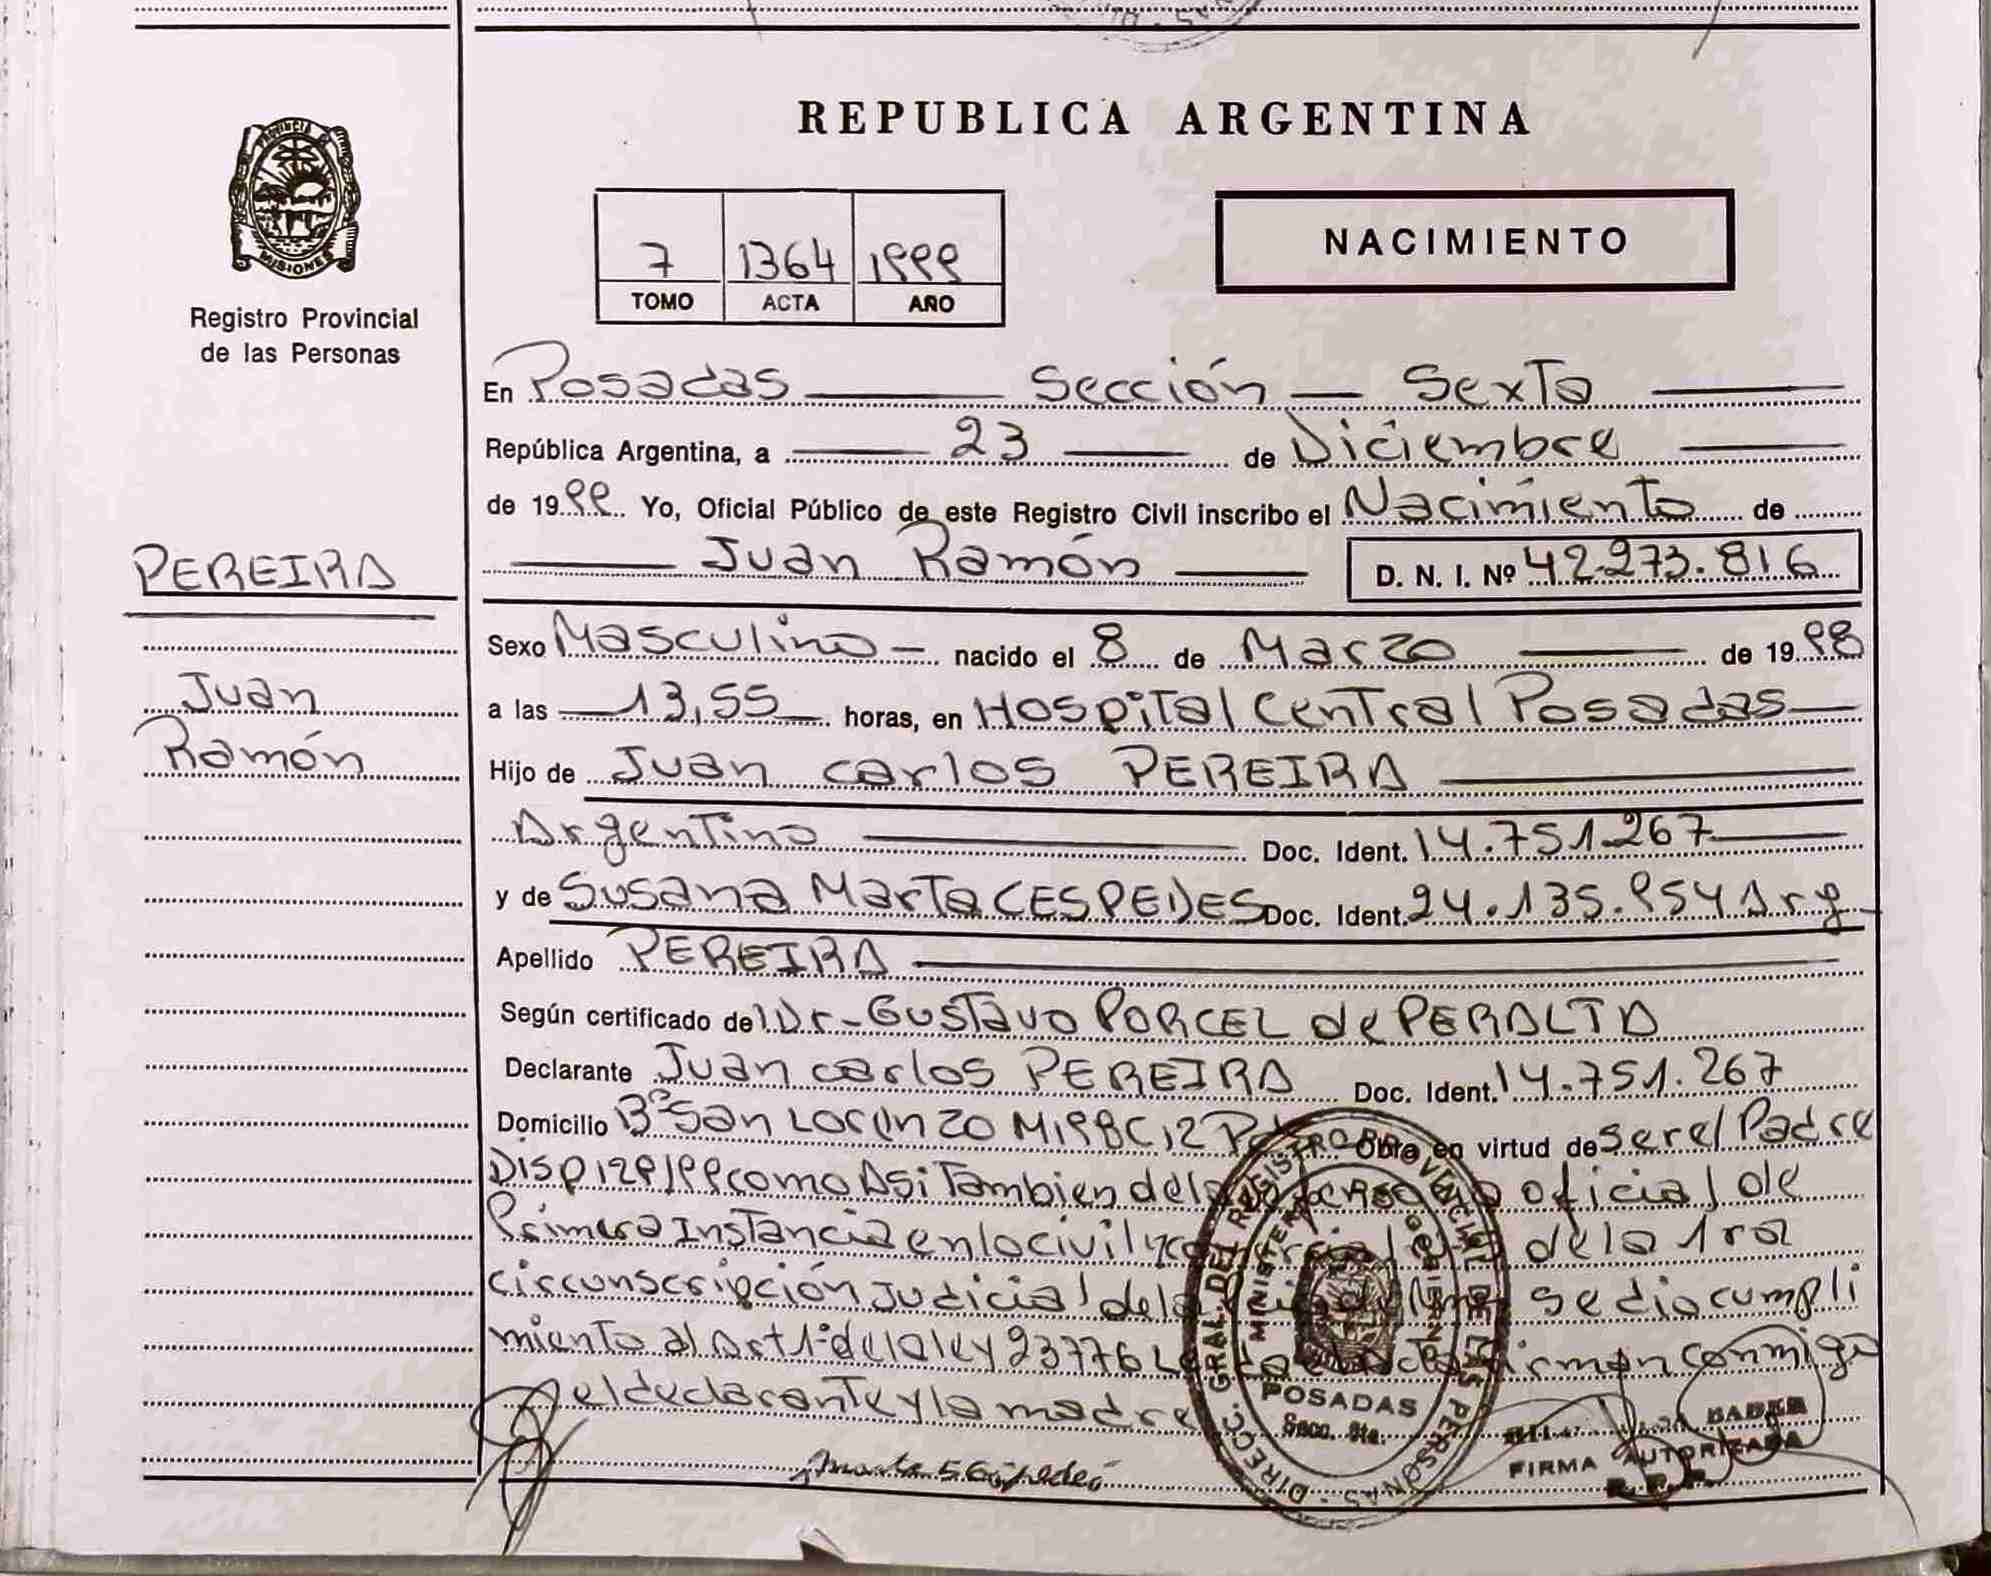 REPUBLICA ARGENTINA
PROVINCIA DE
MISIONES
Registro Provincial
de las Personas
7 1364 1999
TOMO ACTA AÑO
NACIMIENTO
En Posadas Sección Sexta
República Argentina, a 23 de Diciembre
de 1999 Yo, Oficial Público de este Registro Civil inscribo el Nacimiento de
Juan Ramón D. N. I. Nº 42.273.816
PEREIRA
Juan
Ramón
Sexo Masculino nacido el 8 de Marzo de 1998
a las 13,55 horas, en Hospital Central Posadas
Hijo de Juan Carlos PEREIRA
Argentino Doc. Ident. 14.751.267
y de Susana Marta CESPEDES Doc. Ident. 24.135.954 Arg
Apellido PEREIRA
Según certificado de Dr. Gustavo PORCEL de PERALTA
Declarante Juan Carlos PEREIRA Doc. Ident. 14.751.267
Domicilio Bº San Lorenzo Obra en virtud de ser el Padre
Disp 129/99 como Asi Tambien oficial de
Primera Instancia en lo civil y de la 1ra
circunscripción Judicial de la se dio cumpli
miento al Art 1º de la ley 23776 firman conmigo
el declarante y la madre
DIRECC. GRAL. DEL REGISTRO PROVINCIAL DE LAS PERSONAS
MINISTERIO GOBIERNO
POSADAS
Secc. 6ta.
BADER
FIRMA AUTORIZADA
R. P. P.